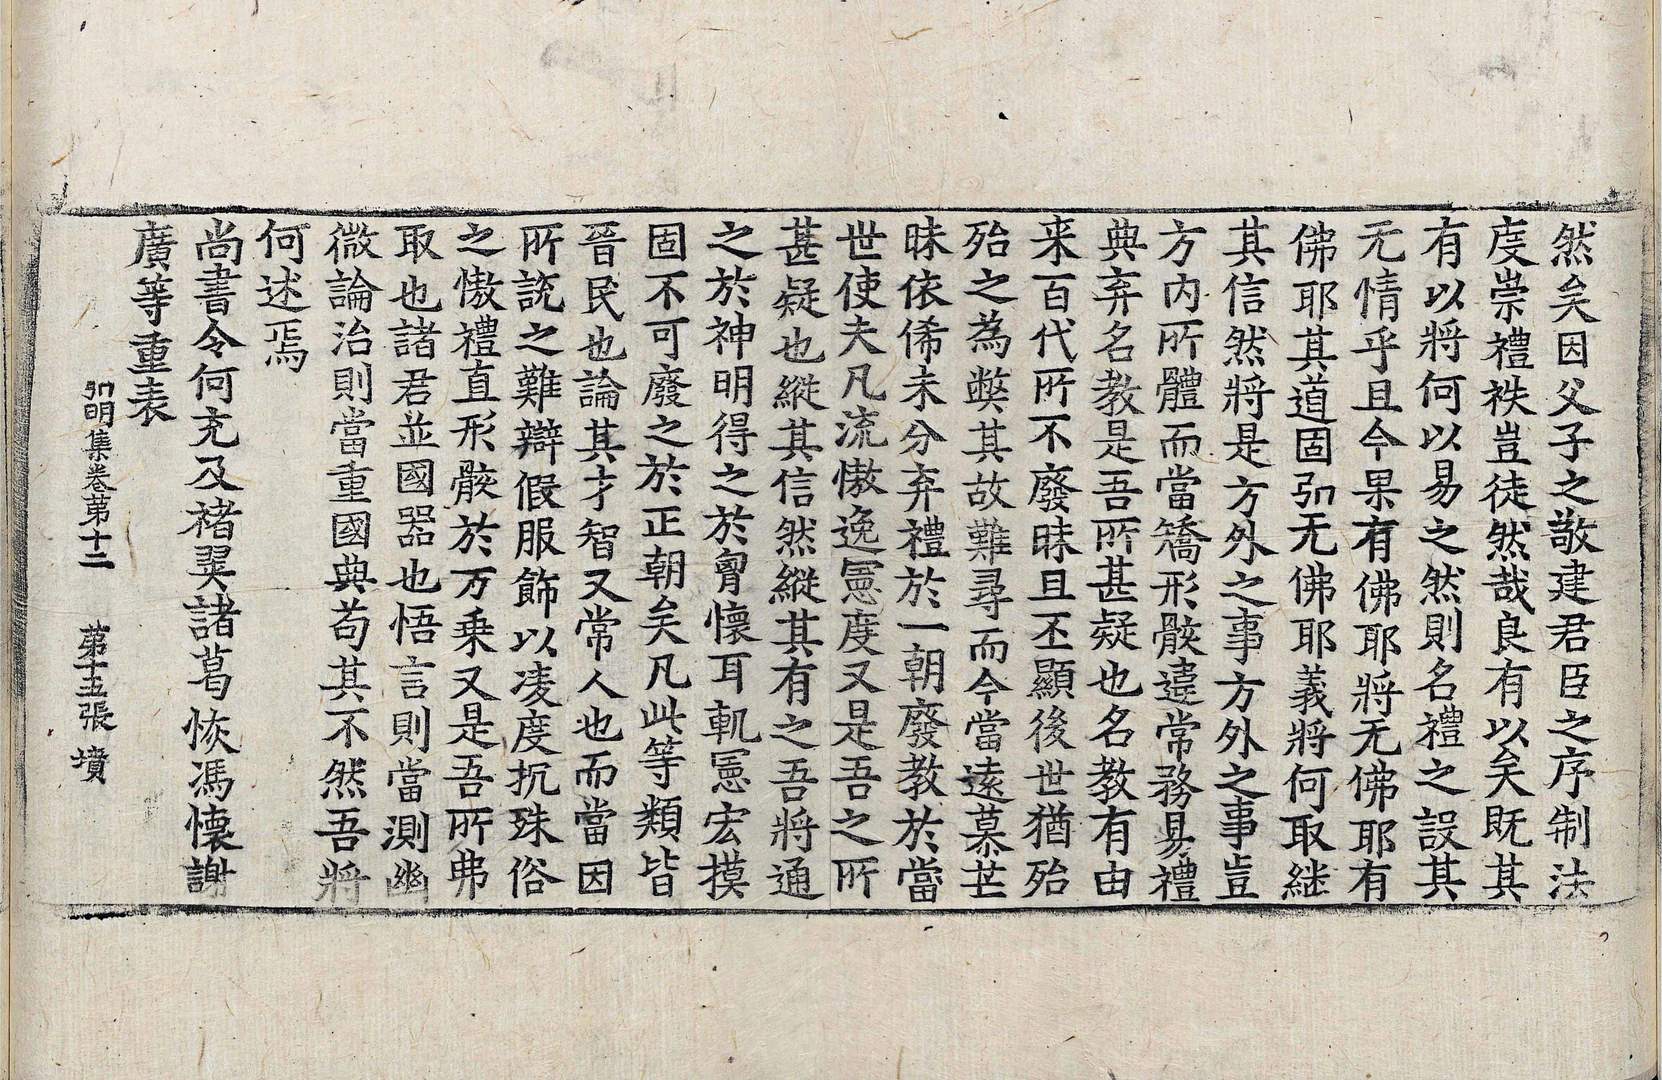 然矣因父子之敬建君臣之序制法
度崇禮袟豈徒然哉良有以矣既其
有以將何以易之然則名禮之設其
无情乎且今果有佛耶將无佛耶有
佛耶其道固弘无佛耶義將何取継
其信然將是方外之事方外之事豈
方內所體而當矯形骸違常務易禮
典弃名教是吾所甚疑也名教有由
来百代所不廢昧旦丕顯後世猶殆
殆之為弊其故難尋而今當遠慕芒
昧依俙未分弃禮於一朝廢教於當
世使夫凡流慠逸憲度又是吾之所
甚疑也縱其信然縱其有之吾將通
之於神明得之於胷懷耳軌憲宏摸
固不可廢之於正朝矣凡此等類皆
晉民也論其才智又常人也而當因
所說之難辯假服飾以凌度抗殊俗
之慠禮直形骸於万乗又是吾所弗
取也諸君並國器也悟言則當測幽
微論治則當重國典苟其不然吾將
何述焉
尚書令何充及褚翜諸葛恢馮懷謝
廣等重表
弘明集卷第十二 第十五張 墳